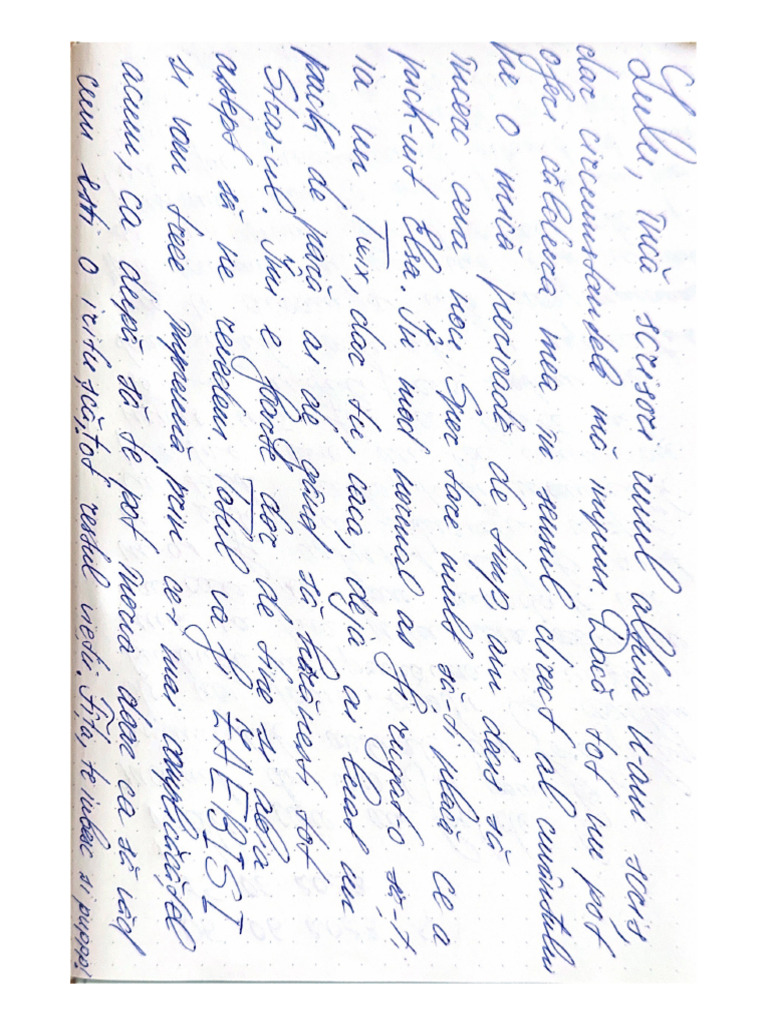 Lulu, încă scrisori unui altuia n-am scris,
dar circumstanțele mă impun. Dacă tot nu pot
oferi căldura mea în sensul direct al cuvântului
pe o mică perioadă de timp am decis să
încerc ceva nou Sper tare mult să-ți placă ce a
pick-uit Elsa. În mod normal aș fi rugato să-ți
ia un Twix, dar tu, caca, deja ai luat un
pack de parcă ai de gând să hrănești tot
Stras-ul. Îmi e foarte dor de tine și abia
aștept să ne revedem. Totul va fi ZAEBISI
și vom trece împreună prin cei mai complicățel
acum, ca după să te pot mânca doar ca să văd
cum ești o iritușcă, tot restul vieții. Fița, te iubesc și pupppp!